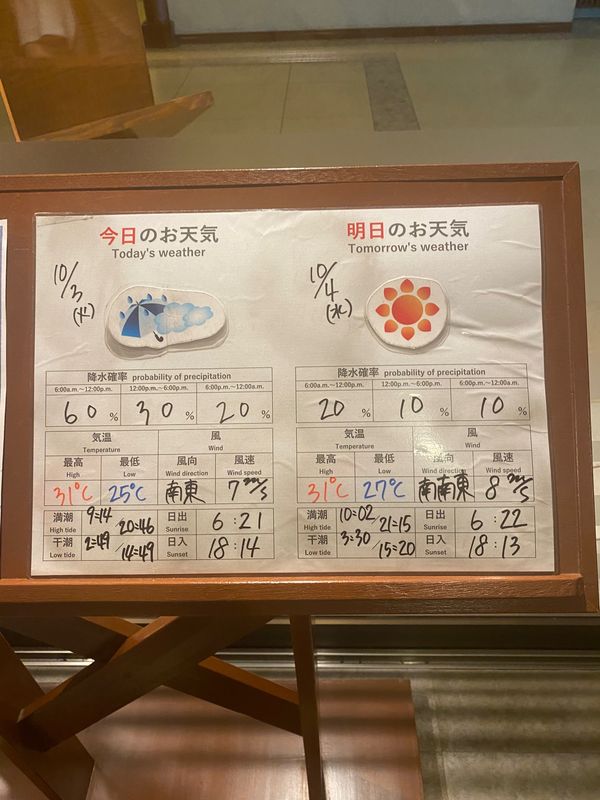 今日のお天気
Today's weather
10/3
(火)
降水確率 probability of precipitation
6:00a.m.~12:00p.m. 12:00p.m.~6:00p.m. 6:00p.m.~12:00a.m.
60% 30% 20%
気温 風
Temperature Wind
最高 最低 風向 風速
High Low Wind direction Wind speed
31℃ 25℃ 南東 7m/s
満潮 9=14/20=46 日出 6:21
High tide Sunrise
干潮 2=49/14=49 日入 18:14
Low tide Sunset
明日のお天気
Tomorrow's weather
10/4
(水)
降水確率 probability of precipitation
6:00a.m.~12:00p.m. 12:00p.m.~6:00p.m. 6:00p.m.~12:00a.m.
20% 10% 10%
気温 風
Temperature Wind
最高 最低 風向 風速
High Low Wind direction Wind speed
31℃ 27℃ 南南東 8m/s
満潮 10=02/21=15 日出 6:22
High tide Sunrise
干潮 3=30/15=20 日入 18:13
Low tide Sunset